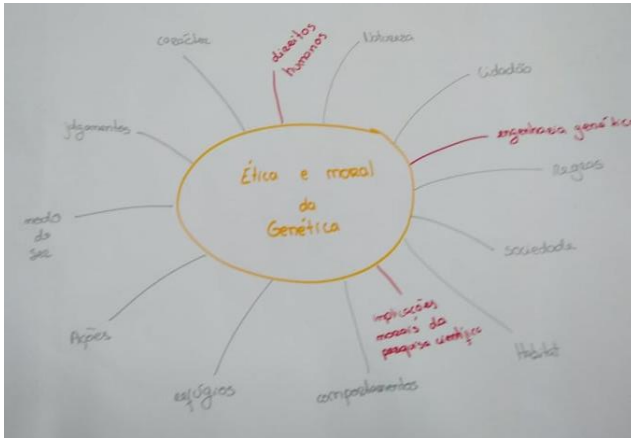 Ética e moral
da
Genética
carácter
direitos
humanos
Natureza
Cidadão
engenharia genética
Regras
sociedade
Habitat
implicações
morais da
pesquisa científica
comportamentos
refúgios
Ações
modo
de
ser
julgamentos